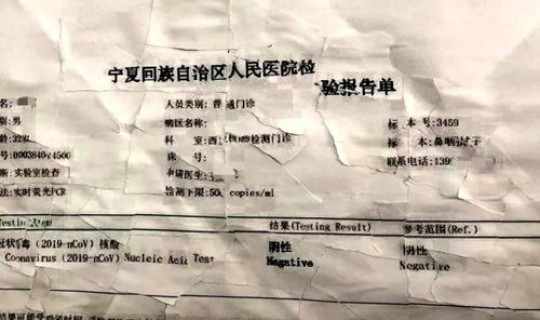 宁夏回族自治区人民医院检
验报告单
名: 人员类别: 普通门诊
别:男 病区名称: 标 本 号:3459
龄:32岁 科 室:西 检测门诊 标 本:鼻咽拭子
号:0003840 4500 床 号: 联系电话:139
断:实验室检查 申请医生:
法:实时荧光PCR 检测下限:50 copies/ml
Testing Item 结果(Testing Result) 参考范围(Ref.)
冠状病毒 (2019-nCoV) 核酸 阴性 阴性
Coonavirus (2019-nCoV) Nucleic Acid Test Negative Negative